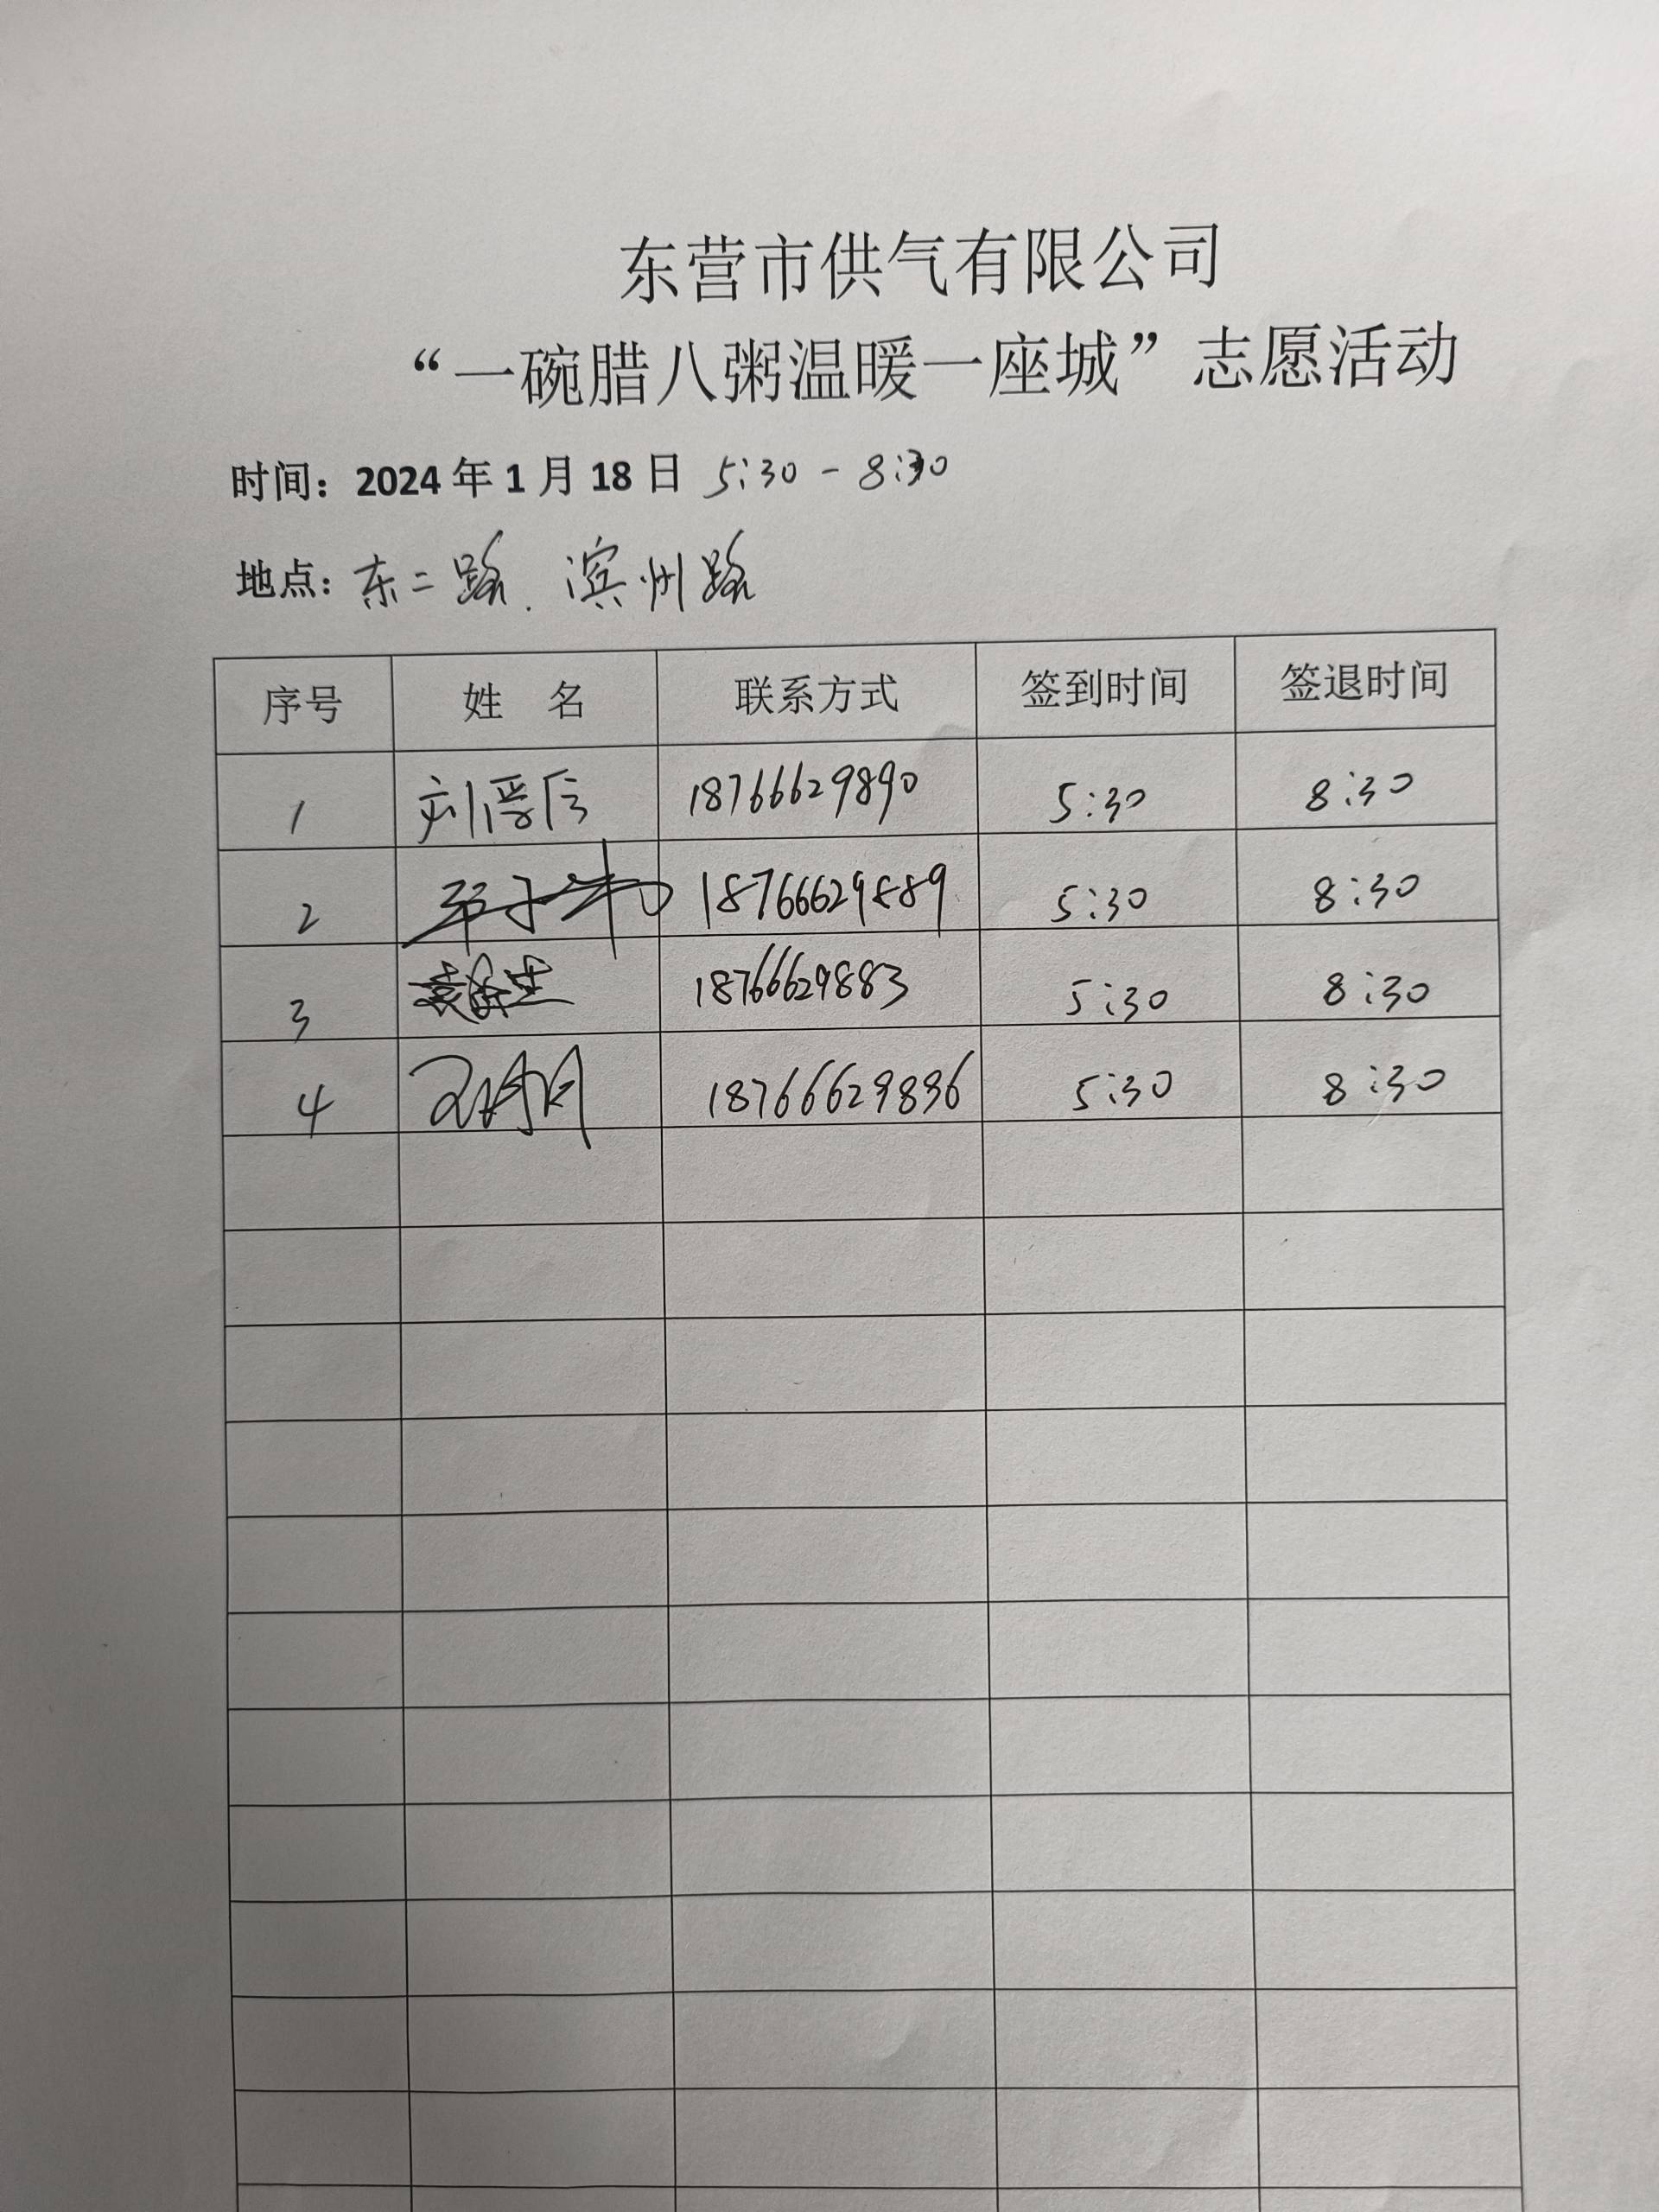 东营市供气有限公司
“一碗腊八粥温暖一座城”志愿活动
时间：2024年1月18日 5:30-8:30
地点：东二路、滨州路
序号 姓 名 联系方式 签到时间 签退时间
1 刘晋信 18766629890 5:30 8:30
2 18766629889 5:30 8:30
3 18766629883 5:30 8:30
4 18766629896 5:30 8:30